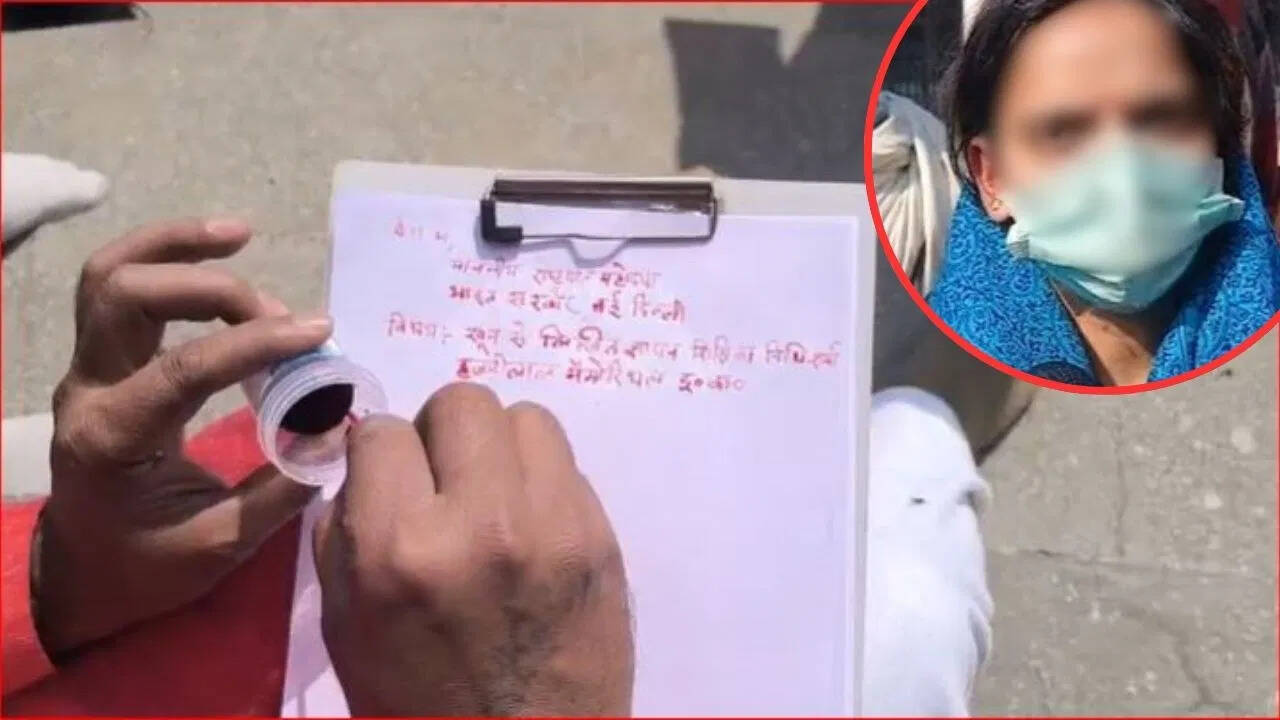 सेवा में,
माननीय राष्ट्रपति महोदया
भारत सरकार नई दिल्ली
विषय:- खून से लिखित ज्ञापन
हजारीलाल मेमोरियल इ०का०